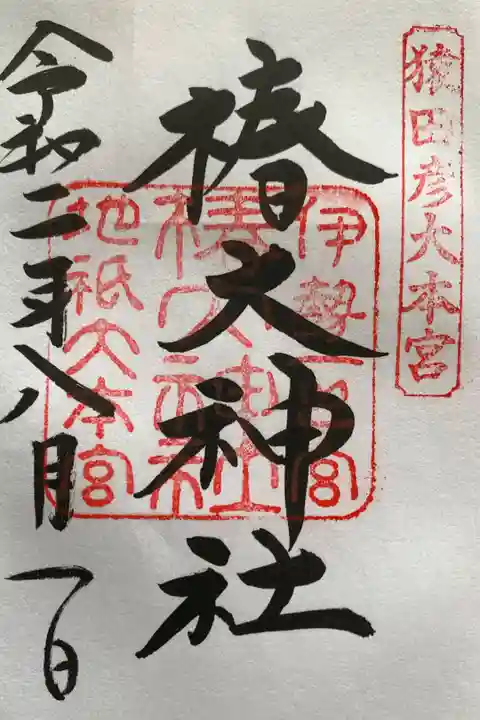 猿田彦大本宮
椿大神社
伊勢一之宮
椿大神社
地祇大本宮
令和二年八月一日